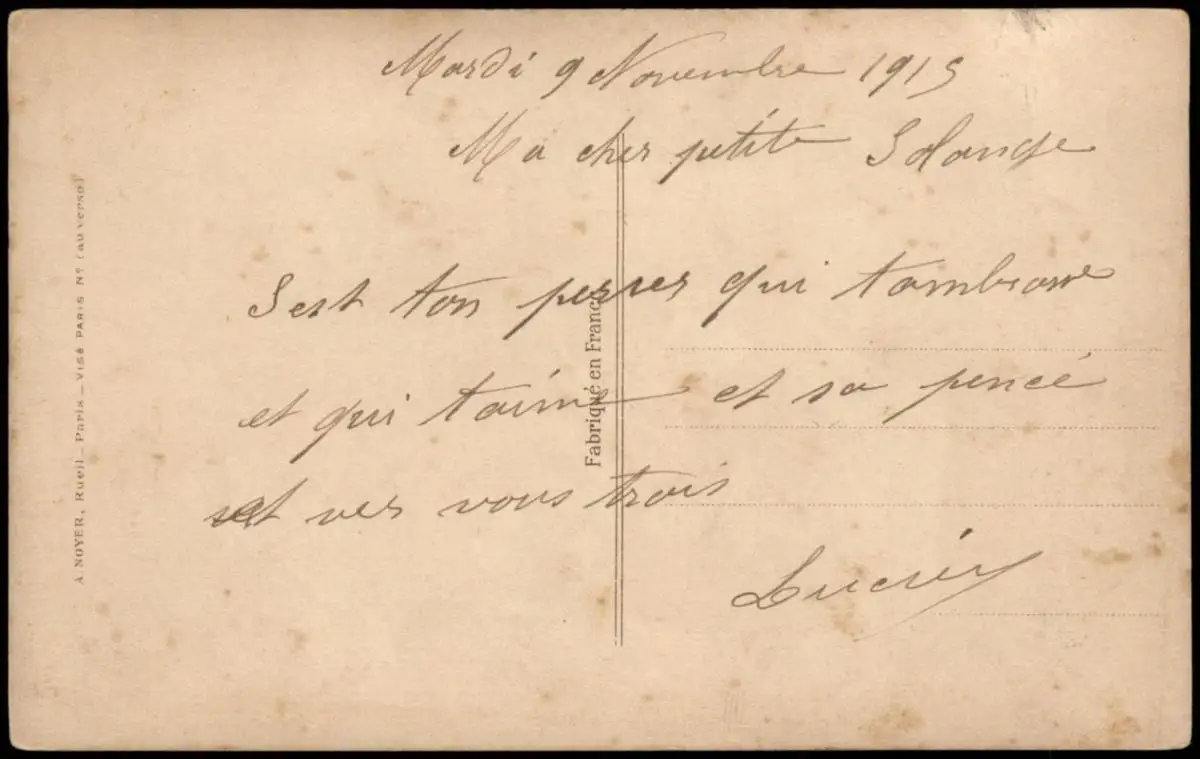 Mardi 9 Novembre 1915
Ma cher petite Solange
Sest ton perres qui tambrase
et qui taime et sa pencé
set ver vous trois
Lucien
Fabriqué en France
A. NOYER, Rueil _ Paris _ VISÉ PARIS Nº (au verso)